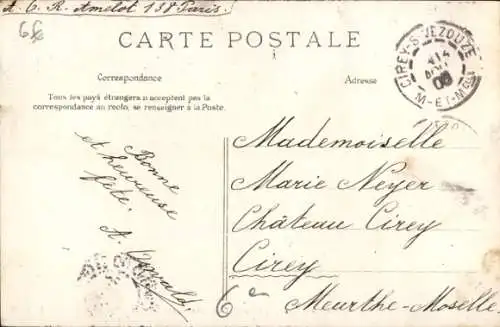 A. C. R. Amelot 138 Paris.
6f
CARTE POSTALE
Correspondance
Adresse
Tous les pays étrangers n'acceptent pas la
correspondance au recto, se renseigner à la Poste.
CIREY-S-VEZOUZE
14
08
M-ET-MLLE
Bonne
et heureuse
fête.
A.
Mademoiselle
Marie Neyer
Château Cirey
Cirey
Meurthe-Moselle
6e